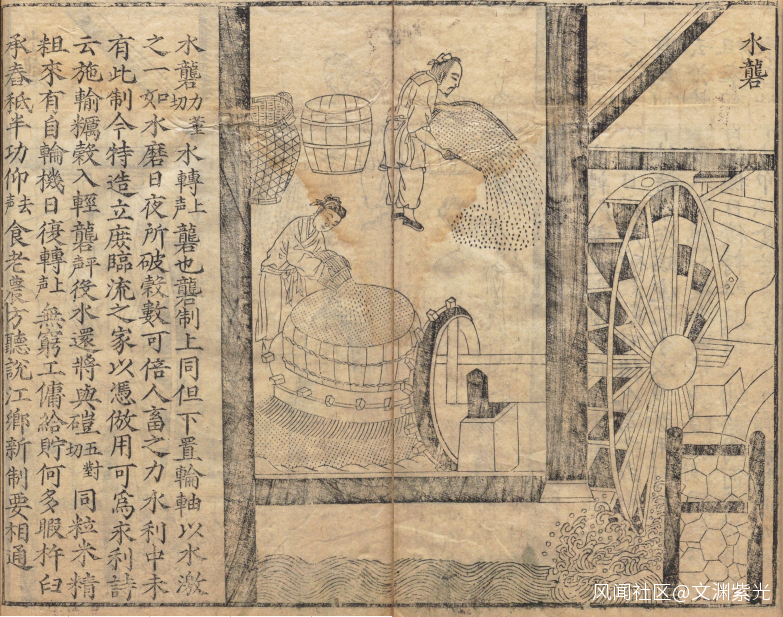 水礱
水礱力董切水轉上声礱也礱制上同但下置輪軸以水激
之一如水磨日夜所破穀數可倍人畜之力水利中未
有此制今特造立庶臨流之家以憑倣用可為永利詩
云施輸糲穀入輕礱平声役水還將與磑五對切同粒米精
粗來有自輪機日復轉上声無窮工傭給貯何多暇杵臼
承舂秪半功仰去声食老農方聽説江鄉新制要相通
风闻社区@文渊紫光